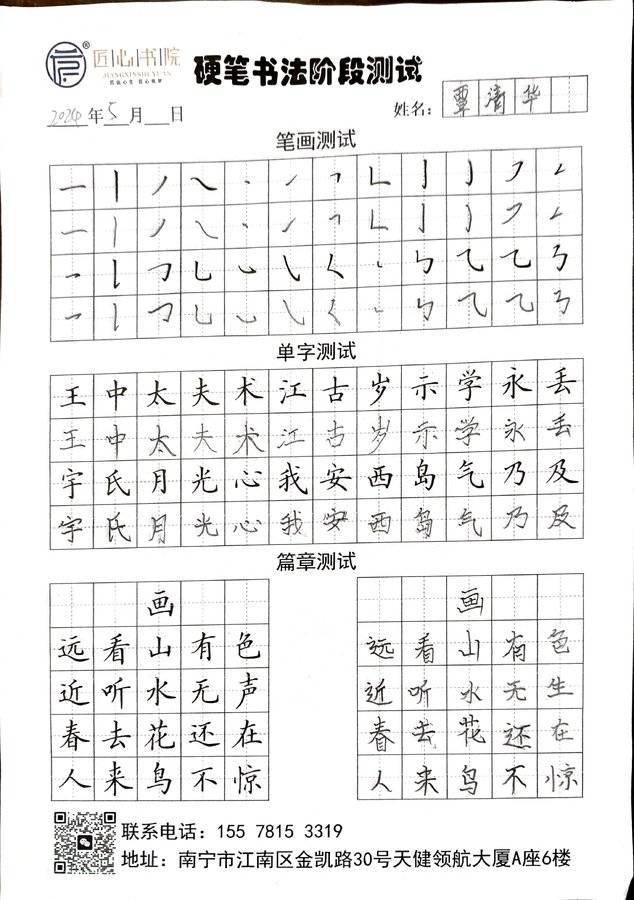 匠心书院
JIANGXINSHUYUAN
硬笔书法阶段测试
2024年5月 日
姓名：覃清华
笔画测试
单字测试
王中太夫术江古岁示学永丢
王中太夫术江古岁示学永丢
宇氏月光心我安西岛气乃及
宇氏月光心我安西岛气乃及
篇章测试
画
远看山有色
近听水无声
春去花还在
人来鸟不惊
画
远看山有色
近听水无生
春去花还在
人来鸟不惊
联系电话：155 7815 3319
地址：南宁市江南区金凯路30号天健领航大厦A座6楼